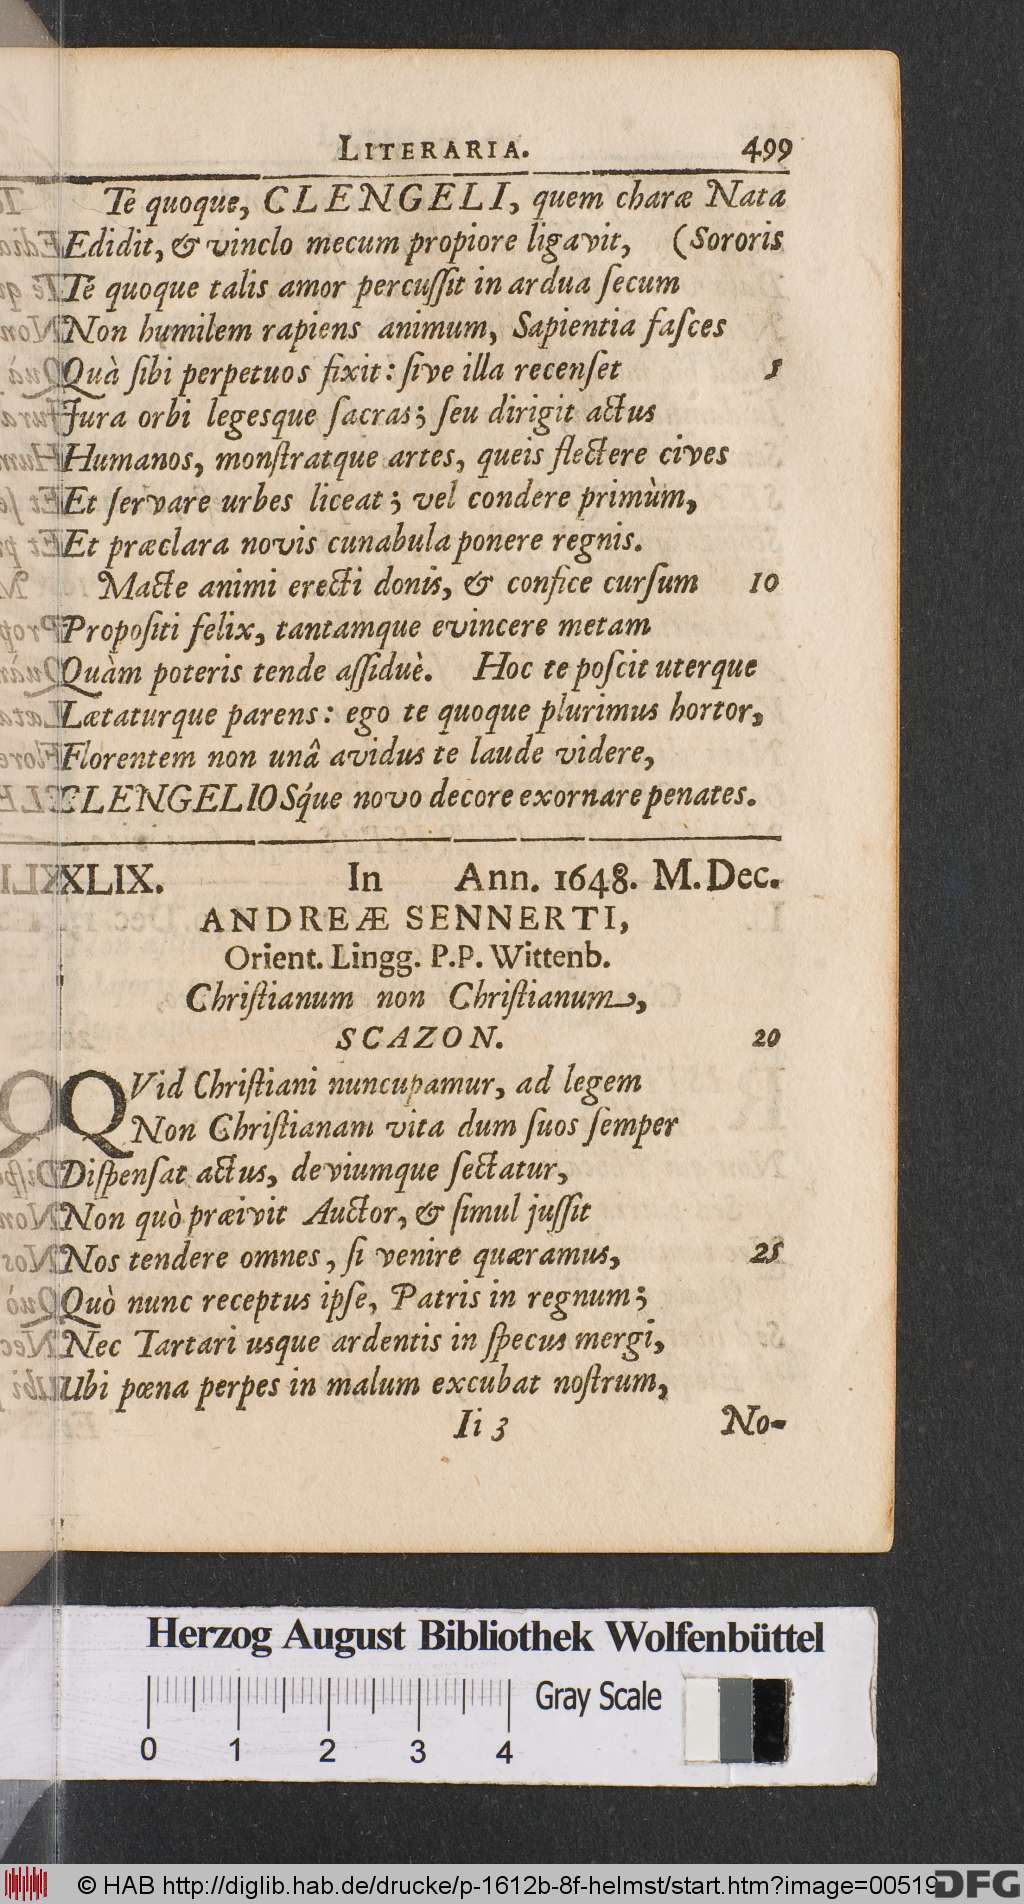 LITERARIA. 499
Te quoque, CLENGELI, quem charæ Nata
Edidit, & vinclo mecum propiore ligavit, (Sororis
Té quoque talis amor percuſſit in ardua ſecum
Non humilem rapiens animum, Sapientia faſces
Quà ſibi perpetuos fixit: ſive illa recenſet 5
Jura orbi legesque ſacras; ſeu dirigit actus
Humanos, monſtratque artes, queis flectere cives
Et ſervare urbes liceat; vel condere primùm,
Et præclara novis cunabula ponere regnis.
Macte animi erecti donis, & confice curſum 10
Propoſiti felix, tantamque evincere metam
Quàm poteris tende aſſiduè. Hoc te poſcit uterque
Lætaturque parens: ego te quoque plurimus hortor,
Florentem non unâ avidus te laude videre,
CLENGELIOSq́ue novo decore exornare penates.
XLIX. In Ann. 1648. M. Dec.
ANDREÆ SENNERTI,
Orient. Lingg. P.P. Wittenb.
Chriſtianum non Chriſtianum,
SCAZON. 20
QVid Chriſtiani nuncupamur, ad legem
Non Chriſtianam vita dum ſuos ſemper
Diſpenſat actus, deviumque ſectatur,
Non quò præivit Auctor, & ſimul juſſit
Nos tendere omnes, ſi venire quæramus, 25
Quò nunc receptus ipſe, Patris in regnum;
Nec Tartari usque ardentis in ſpecus mergi,
Ubi pœna perpes in malum excubat noſtrum,
Ii 3 No-
Herzog August Bibliothek Wolfenbüttel
Gray Scale
0 1 2 3 4
© HAB http://diglib.hab.de/drucke/p-1612b-8f-helmst/start.htm?image=00519
DFG